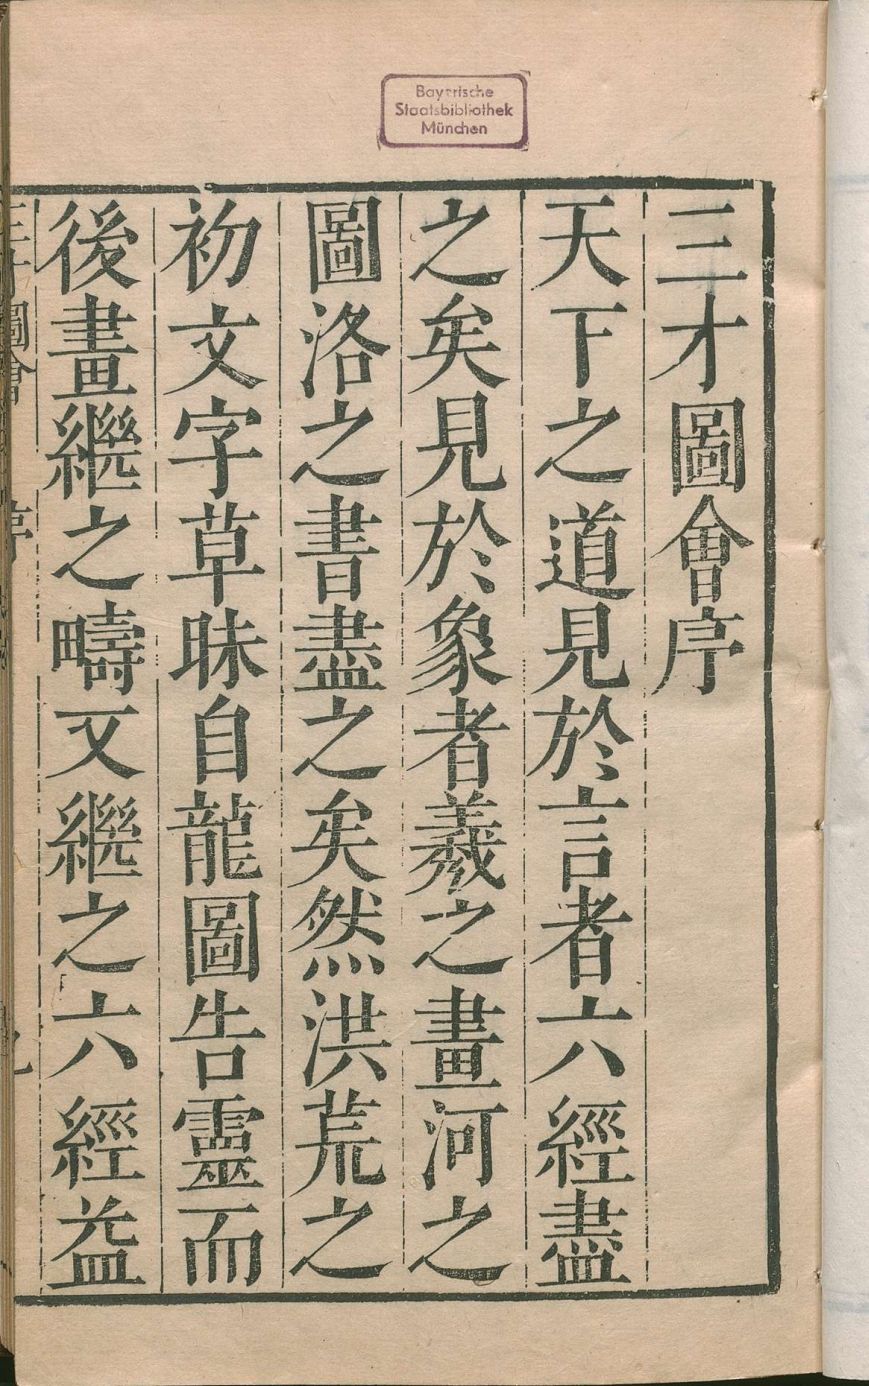 Bayerische
Staatsbibliothek
München
三才圖會序
天下之道見於言者六經盡
之矣見於象者羲之畫河之
圖洛之書盡之矣然洪荒之
初文字草昧自龍圖告靈而
後畫繼之疇文繼之六經益